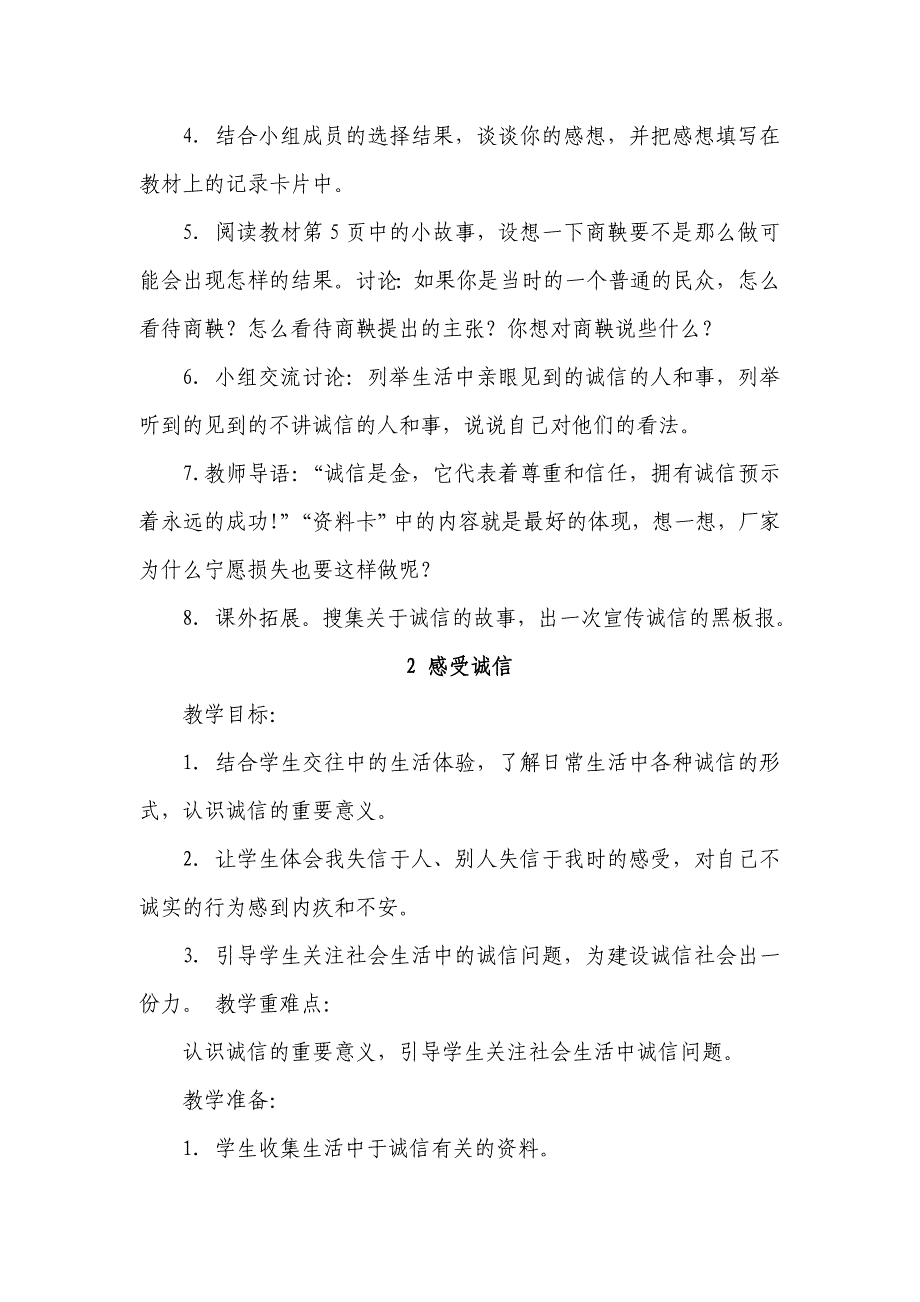 4．结合小组成员的选择结果，谈谈你的感想，并把感想填写在
教材上的记录卡片中。
5．阅读教材第 5 页中的小故事，设想一下商鞅要不是那么做可
能会出现怎样的结果。讨论：如果你是当时的一个普通的民众，怎么
看待商鞅？怎么看待商鞅提出的主张？你想对商鞅说些什么？
6．小组交流讨论：列举生活中亲眼见到的诚信的人和事，列举
听到的见到的不讲诚信的人和事，说说自己对他们的看法。
7.教师导语：“诚信是金，它代表着尊重和信任，拥有诚信预示
着永远的成功！”“资料卡”中的内容就是最好的体现，想一想，厂家
为什么宁愿损失也要这样做呢？
8．课外拓展。搜集关于诚信的故事，出一次宣传诚信的黑板报。
2 感受诚信
教学目标：
1．结合学生交往中的生活体验，了解日常生活中各种诚信的形
式，认识诚信的重要意义。
2．让学生体会我失信于人、别人失信于我时的感受，对自己不
诚实的行为感到内疚和不安。
3．引导学生关注社会生活中的诚信问题，为建设诚信社会出一
份力。 教学重难点：
认识诚信的重要意义，引导学生关注社会生活中诚信问题。
教学准备：
1．学生收集生活中于诚信有关的资料。